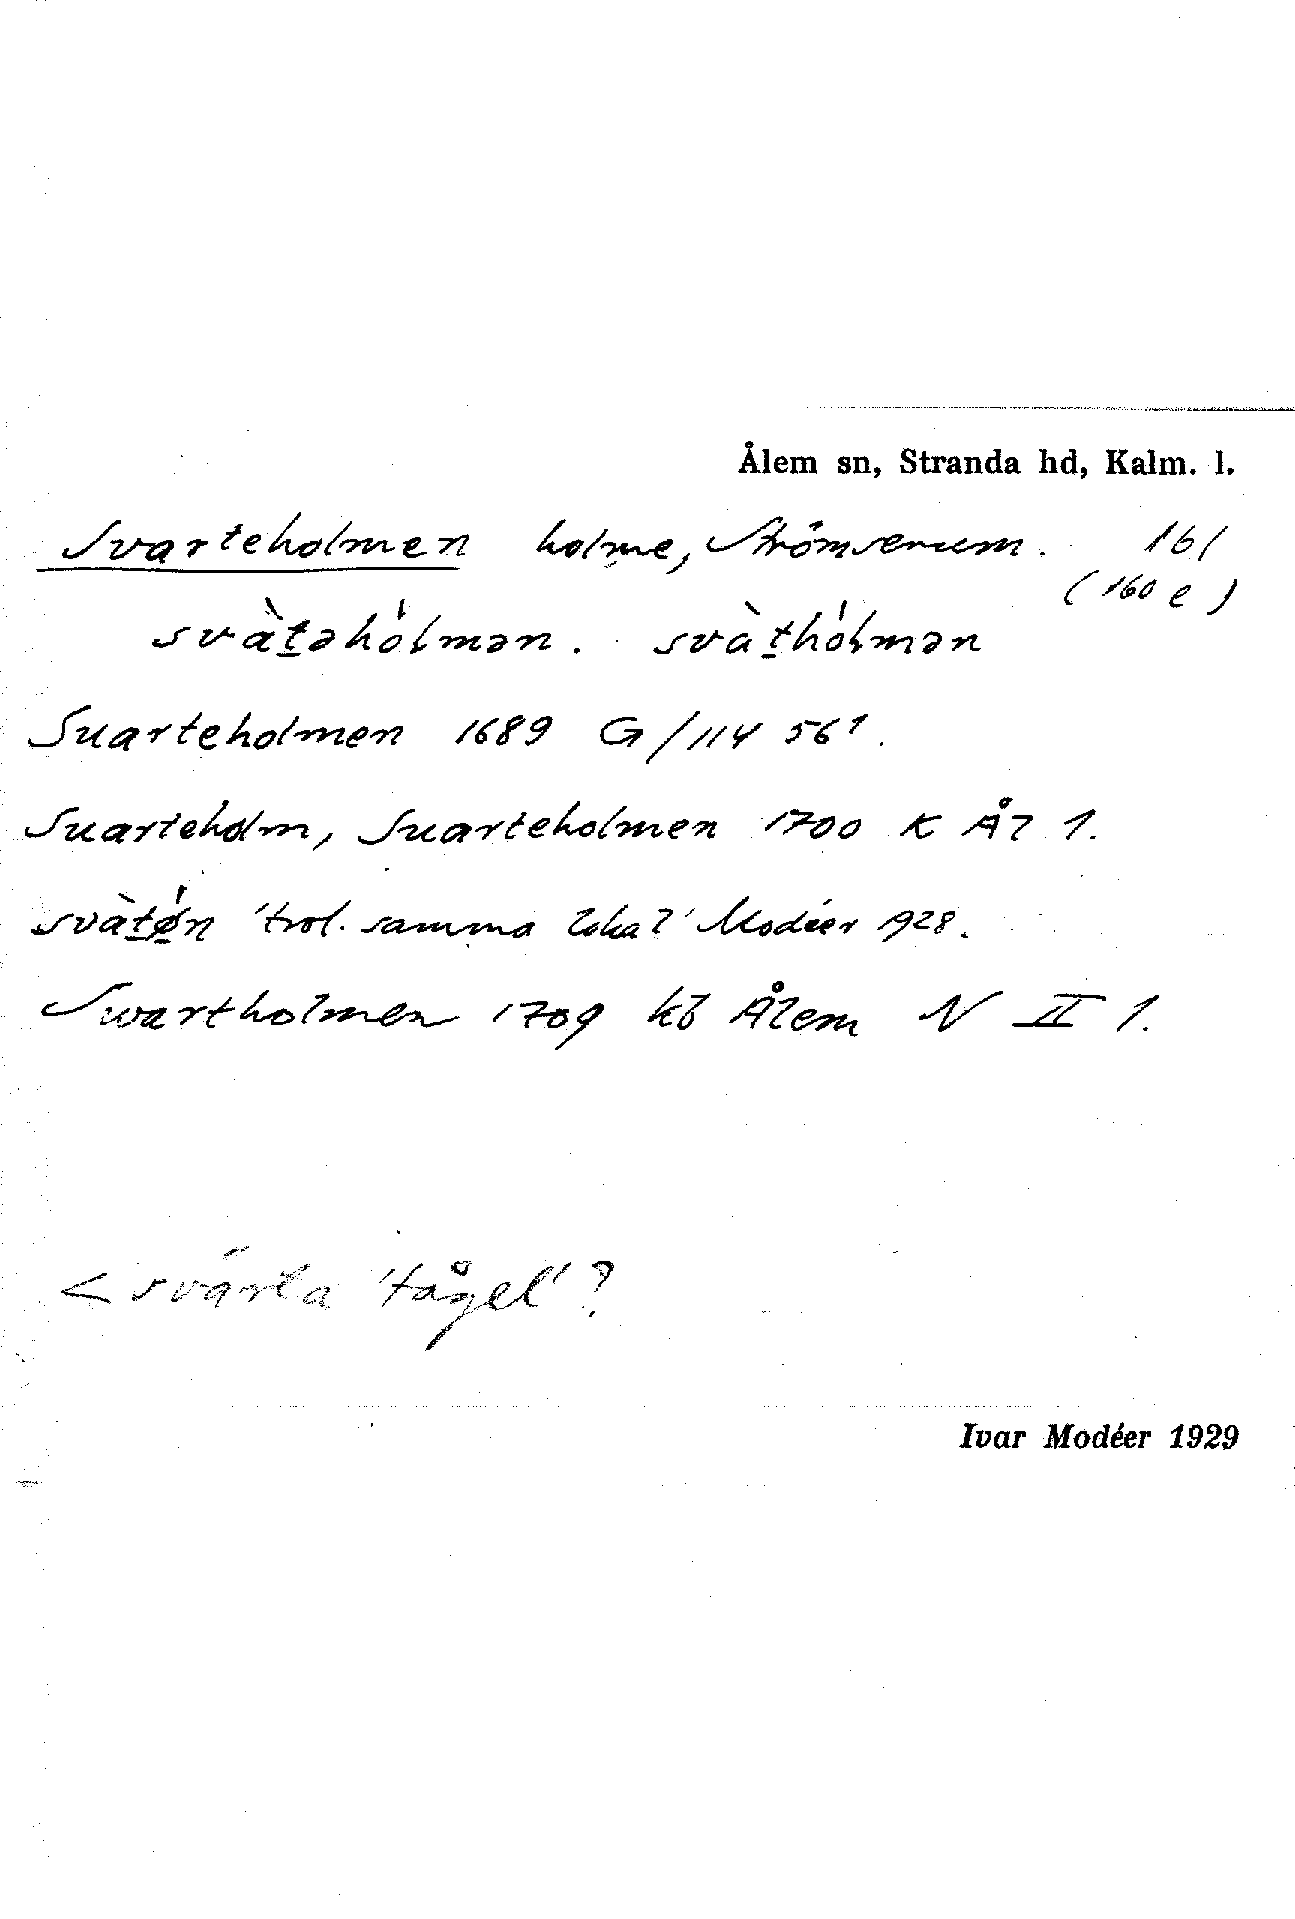 Ålem sn, Stranda hd, Kalm. l.
Svarteholmen holme, Strömserum. 161
(160 e)
svàṯəhólmən. svàṯhólmən
Suarteholmen 1689 G/114 56¹.
Suarteholm, Suarteholmen 1700 K Ål 1.
svàṯø̱n 'trol. samma lokal' Modéer 1928.
Swartholmen 1709 kb Ålem N II 1.
< svarta 'tågel'?
Ivar Modéer 1929